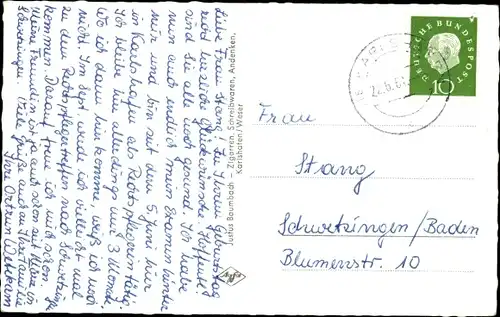 Liebe Frau Stang! Zu Ihrem Geburtstag
recht herzliche Glückwünsche. Hoffentl.
sind Sie alle noch gesund. Ich habe
nun auch endlich mein Examen hinter
mir und bin seit dem 5. Juni hier
in Karlshafen als Rechtspflegerin tätig.
Ich bleibe hier allerdings nur 3 Monate.
Wo ich dann hinkomme, weiß ich noch
nicht. Im Sept. werde ich vielleicht mal
zu dem Rechtspflegertreffen nach Schwetzinge
kommen. Darauf freue ich mich schon.
Meine Freundin ist ja auch schon seit
Schwetzingen. Viele Grüße auch an Ihre Familie
Ihre Ortrun
Justus Baumbach - Zigarren, Schreibwaren, Andenken,
Karlshafen/Weser
DEUTSCHE BUNDESPOST
10
KARLS
24.6.61
Frau
Stang
Schwetzingen/Baden
Blumenstr. 10